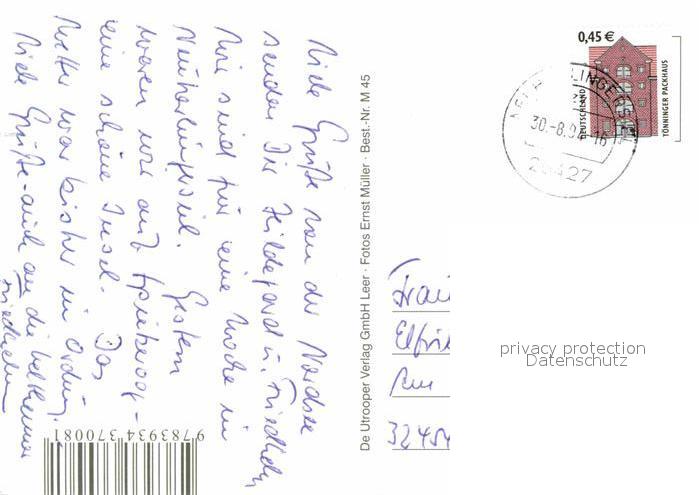 Viele Grüße von der Nordsee
senden Dir Hildegard u. Friedhelm
Wir sind für eine Woche in
Neuharlingersiel. Gestern
waren wir auf Spiekeroog -
eine schöne Insel. Das
Wetter war bisher in Ordnung.
Viele Grüße - auch an die
Friedhelm
9783934370081
De Utrooper Verlag GmbH Leer · Fotos Ernst Müller · Best.-Nr. M 45
0,45 €
DEUTSCHLAND
TÖNNINGER PACKHAUS
30.-8.02-16
26427
Frau
Elfri
Am
32454
privacy protection
Datenschutz